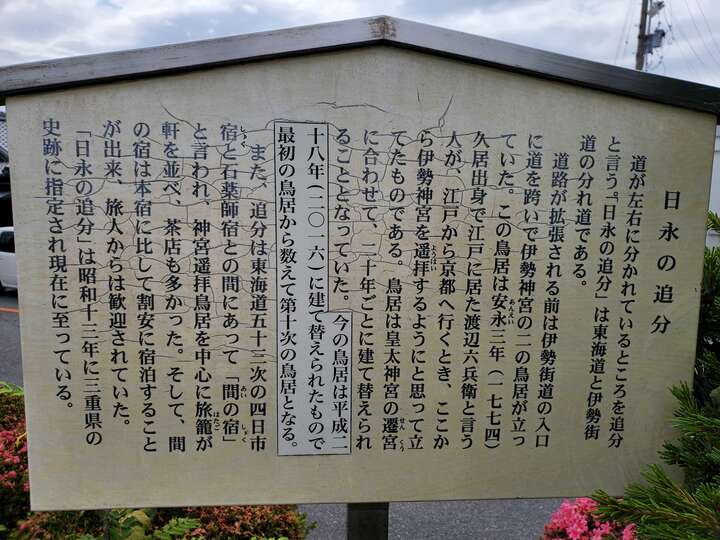 日永の追分
道が左右に分かれているところを追分
と言う。「日永の追分」は東海道と伊勢街
道の分れ道である。
道路が拡張される前は伊勢街道の入口
に道を跨いで伊勢神宮の二の鳥居が立っ
ていた。この鳥居は安永三年（一七七四）
久居出身で江戸に居た渡辺六兵衛と言う
人が、江戸から京都へ行くとき、ここか
ら伊勢神宮を遥拝するようにと思って立
てたものである。鳥居は皇太神宮の遷宮
に合わせて、二十年ごとに建て替えられ
ることとなっていた。今の鳥居は平成二
十八年（二〇一六）に建て替えられたもので
最初の鳥居から数えて第十次の鳥居となる。
また、追分は東海道五十三次の四日市
宿と石薬師宿との間にあって「間の宿」
と言われ、神宮遥拝鳥居を中心に旅籠が
軒を並べ、茶店も多かった。そして、間
の宿は本宿に比して割安に宿泊すること
が出来、旅人からは歓迎されていた。
「日永の追分」は昭和十三年に三重県の
史跡に指定され現在に至っている。